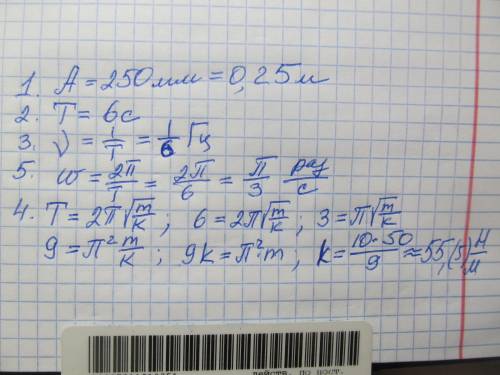 1. A = 250мм = 0,25м
2. T = 6с
3. ν = 1/T = 1/6 Гц
5. ω = 2π/T = 2π/6 = π/3 рад/с
4. T = 2π√m/k ; 6 = 2π√m/k ; 3 = π√m/k
9 = π² m/k ; 9k = π²·m , k = 10·50/9 ≈ 55,(5) Н/м
действ. до пост.